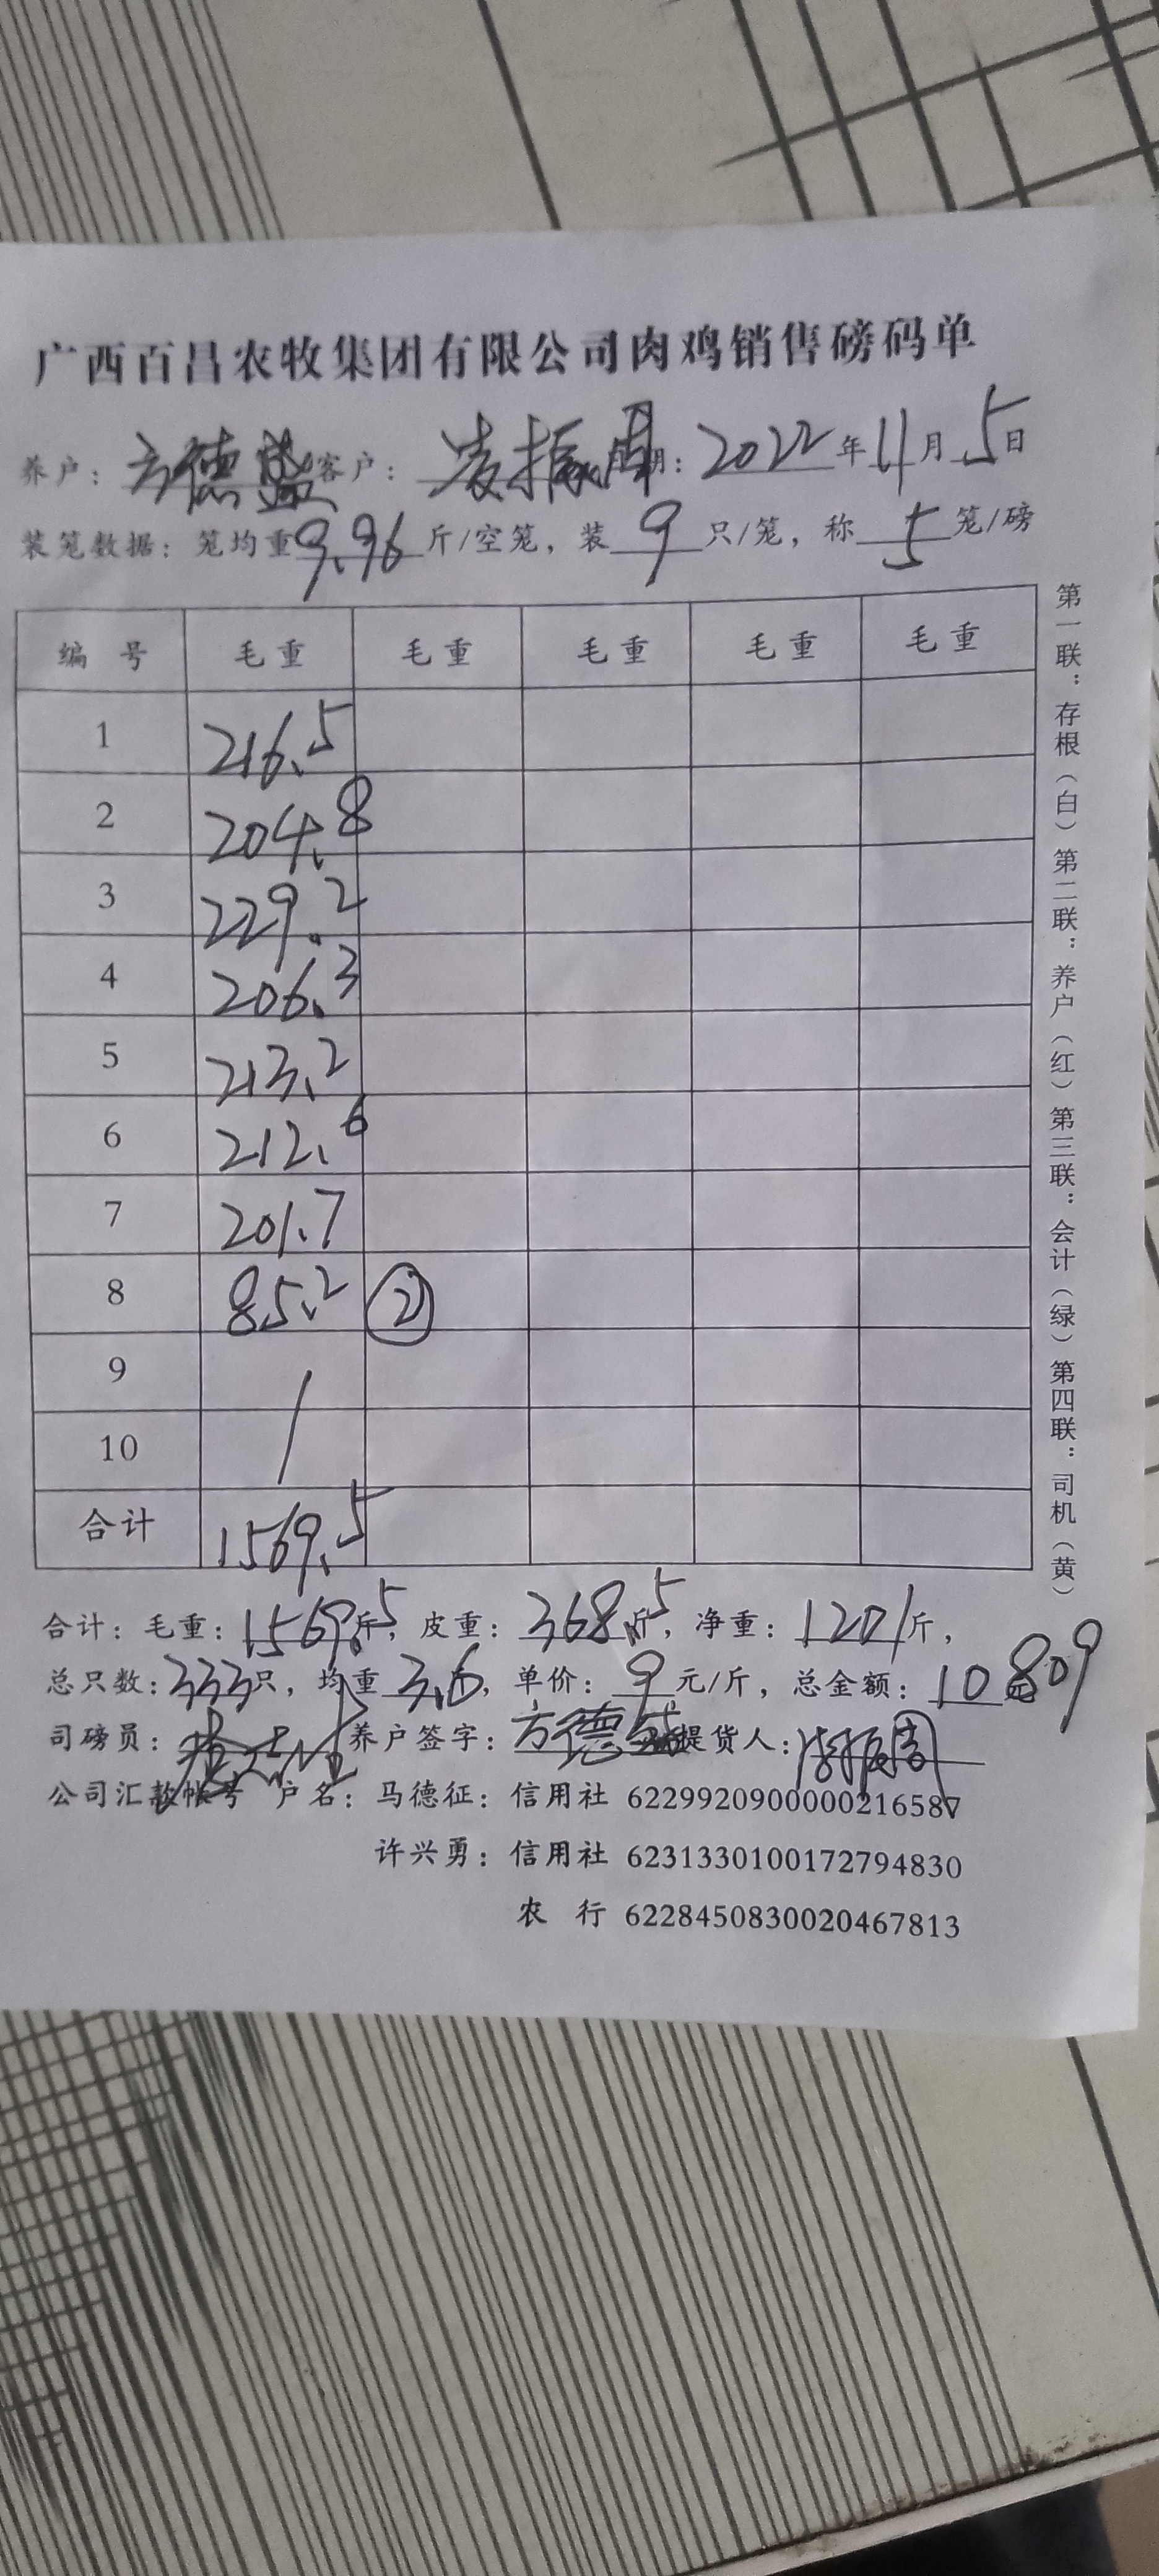 广西百昌农牧集团有限公司肉鸡销售磅码单
养户：方德盛 客户：凌振周 日期：2022年11月5日
装笼数据：笼均重9.96斤/空笼，装9只/笼，称5笼/磅
编号 毛重 毛重 毛重 毛重 毛重
1 216.5
2 204.8
3 229.2
4 206.3
5 213.2
6 212.6
7 201.7
8 85.2 ②
9 /
10
合计 1569.5
合计：毛重：1569.5斤，皮重：368.5斤，净重：1201斤，
总只数：333只，均重3.6，单价：9元/斤，总金额：10809
司磅员： 养户签字：方德盛 提货人：
公司汇款帐号 户名：马德征：信用社 6229920900000216587
许兴勇：信用社 6231330100172794830
农 行 6228450830020467813
第一联：存根（白）第二联：养户（红）第三联：会计（绿）第四联：司机（黄）